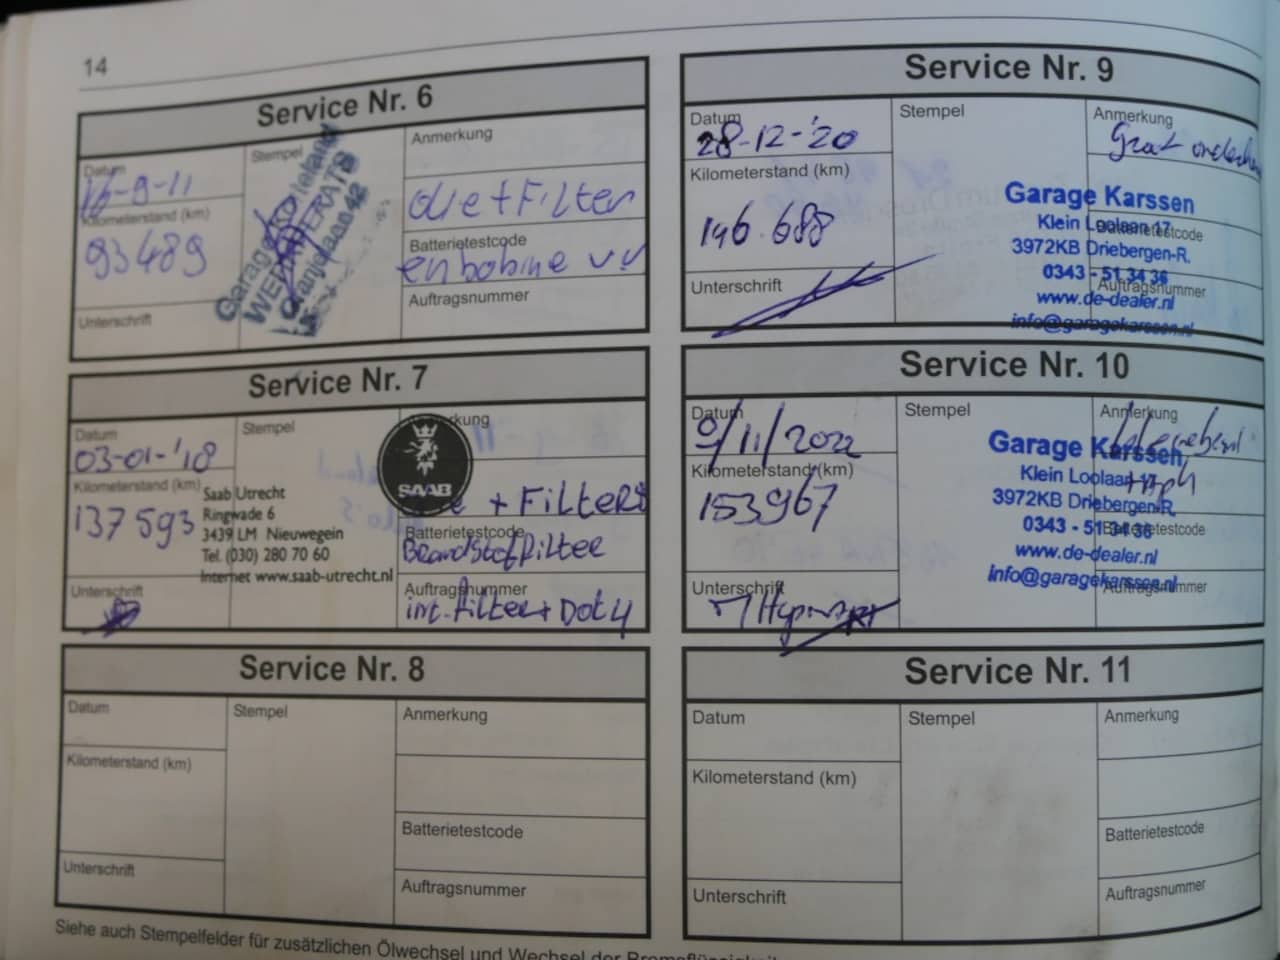 14
Service Nr. 6
Datum
16-9-11
Kilometerstand (km)
93489
Unterschrift
Stempel
Garage
Oranjelaan 42
Anmerkung
olie + Filter
Batterietestcode
en bobine
Auftragsnummer
Service Nr. 7
Datum
03-01-'18
Kilometerstand (km)
137 593
Unterschrift
Stempel
Saab Utrecht
Ringwade 6
3439 LM Nieuwegein
Tel. (030) 280 70 60
Internet www.saab-utrecht.nl
SAAB
+ Filters
Batterietestcode
Brandstoffilter
Auftragsnummer
int. filter + Dot 4
Service Nr. 8
Datum
Kilometerstand (km)
Unterschrift
Stempel
Anmerkung
Batterietestcode
Auftragsnummer
Siehe auch Stempelfelder für zusätzlichen Ölwechsel und Wechsel der
Service Nr. 9
Datum
28-12-'20
Kilometerstand (km)
146.688
Unterschrift
Stempel
Garage Karssen
Klein Loolaan 17
3972KB Driebergen-R.
0343 - 51 34 36
www.de-dealer.nl
info@garagekarssen.nl
Anmerkung
Batterietestcode
Auftragsnummer
Service Nr. 10
Datum
/11/2022
Kilometerstand (km)
153967
Unterschrift
Stempel
Garage Karssen
Klein Loolaan 17
3972KB Driebergen-R.
0343 - 51 34 36
www.de-dealer.nl
info@garagekarssen.nl
Anmerkung
Batterietestcode
Auftragsnummer
Service Nr. 11
Datum
Kilometerstand (km)
Unterschrift
Stempel
Anmerkung
Batterietestcode
Auftragsnummer